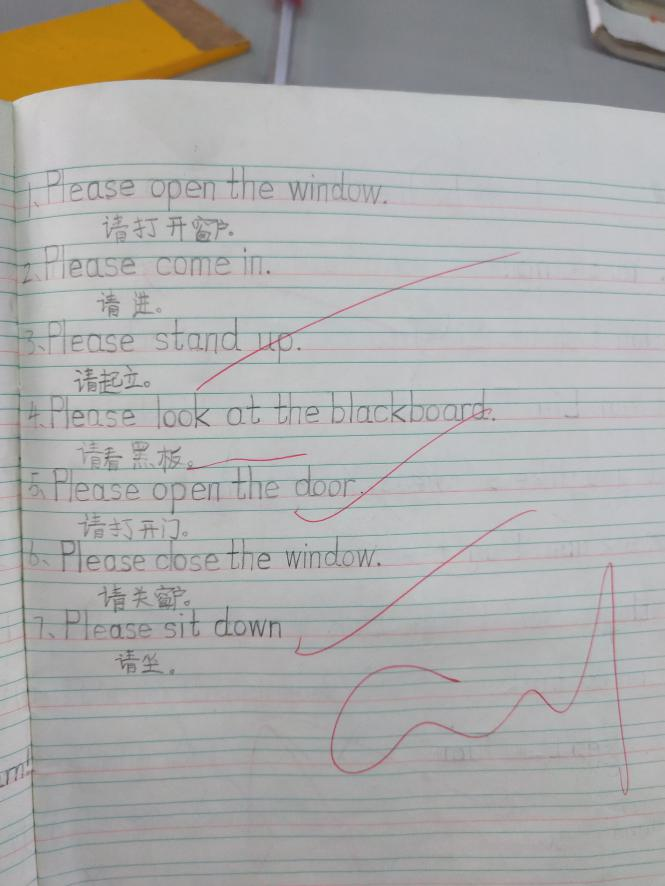 1、Please open the window.
请打开窗户。
2、Please come in.
请进。
3、Please stand up.
请起立。
4、Please look at the blackboard.
请看黑板。
5、Please open the door.
请打开门。
6、Please close the window.
请关窗户。
7、Please sit down
请坐。